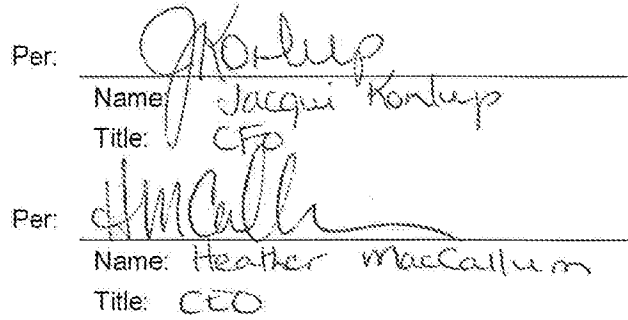 Per: JKorlup
Name: Jacqui Korlup
Title: CFO
Per: HMCall
Name: Heather MacCallum
Title: CEO